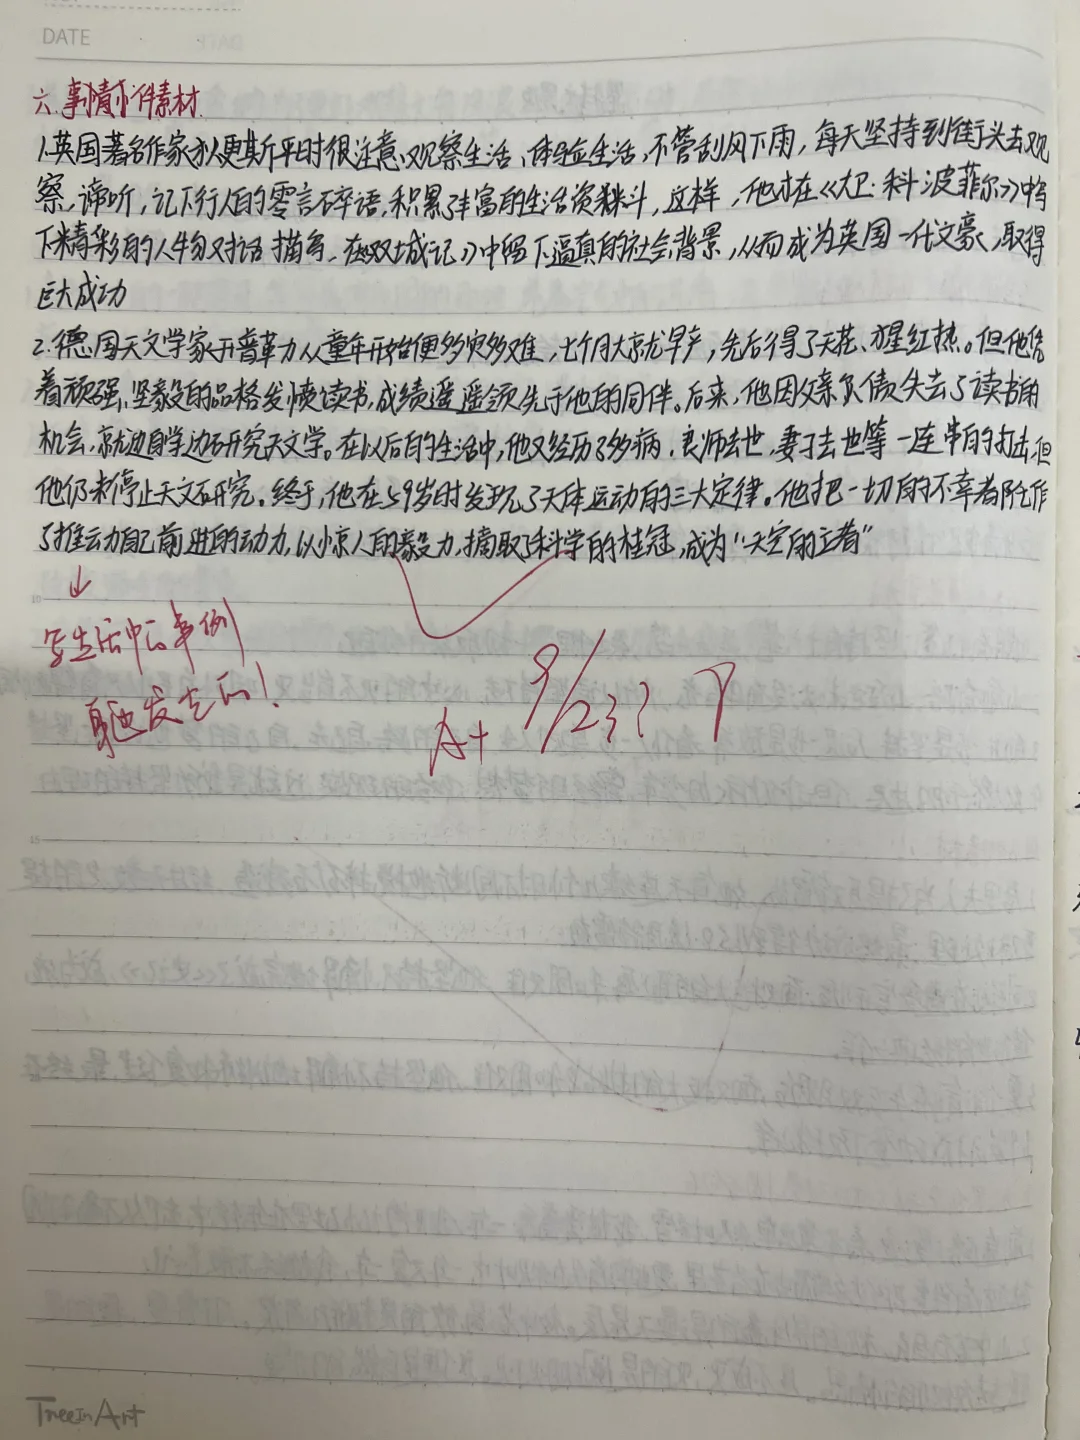 DATE
六.事情事件素材
1.英国著名作家狄更斯平时很注意观察生活、体验生活,不管刮风下雨,每天坚持到街头去观
察,谛听,记下行人的零言碎语,积累了丰富的生活资料,这样,他才在《大卫·科波菲尔》中写
下精彩的人物对话描写,在《双城记》中留下逼真的社会背景,从而成为英国一代文豪,取得
巨大成功
2.德国天文学家开普勒从童年开始便多灾多难,七个月大就早产,先后得了天花、猩红热。但他凭
着顽强、坚毅的品格发愤读书,成绩遥遥领先于他的同伴。后来,他因父亲欠债失去了读书的
机会,就边自学边研究天文学。在以后的生活中,他又经历了多病、良师去世、妻子去世等一连串的打击,但
他仍未停止天文研究。终于,他在59岁时发现了天体运动的三大定律。他把一切的不幸都化作
了推动自己前进的动力,以惊人的毅力,摘取了科学的桂冠,成为“天空的立法者”
↓
写生活中的事例
身边发生的!
A+
9/23
TreeInArt